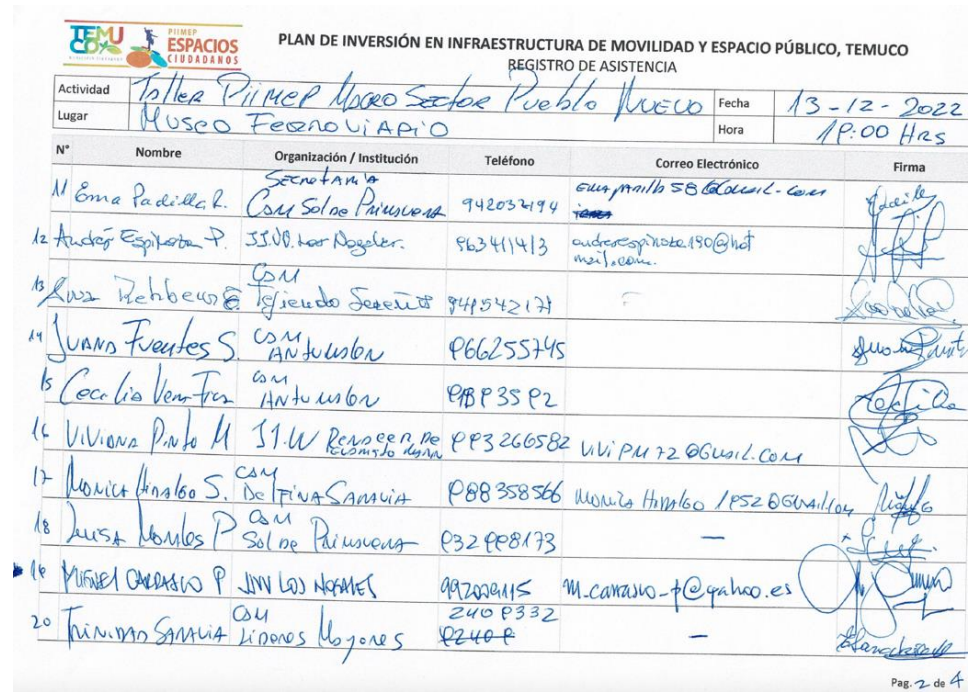 TEMUCO
PIIMEP
ESPACIOS
CIUDADANOS
PLAN DE INVERSIÓN EN INFRAESTRUCTURA DE MOVILIDAD Y ESPACIO PÚBLICO, TEMUCO
REGISTRO DE ASISTENCIA
Actividad Taller PiiMEP Macro Sector Pueblo Nuevo Fecha 13-12-2022
Lugar Museo Ferroviario Hora 19:00 Hrs
N° Nombre Organización / Institución Teléfono Correo Electrónico Firma
Secretaria
11 Ema Padilla R. Com Sol de Primavera 942032194
12 Andrés Espinoza P. JJ.VV. Los Nogales. 963411413 andresespinoza190@hot
mail.com.
COM
13 Tejiendo Sueños 941542171
14 Juana Fuentes S. COM Antumalen 966255745
15 Cecilia COM Antumalen
16 Viviana Pinto M JJ.VV 993266582 vivipm72@gmail.com
17 Monica Hidalgo S. COM Delfina Saravia 988358566 monicahidalgo1952@gmail.com
18 Luisa Morales P COM Sol de Primavera 932998173 —
19 Miguel Carrasco P JVV Los Nogales m.carrasco-p@yahoo.es
20 Trinidad Saravia COM Lideres Mayores 2409332 —
Pag. 2 de 4